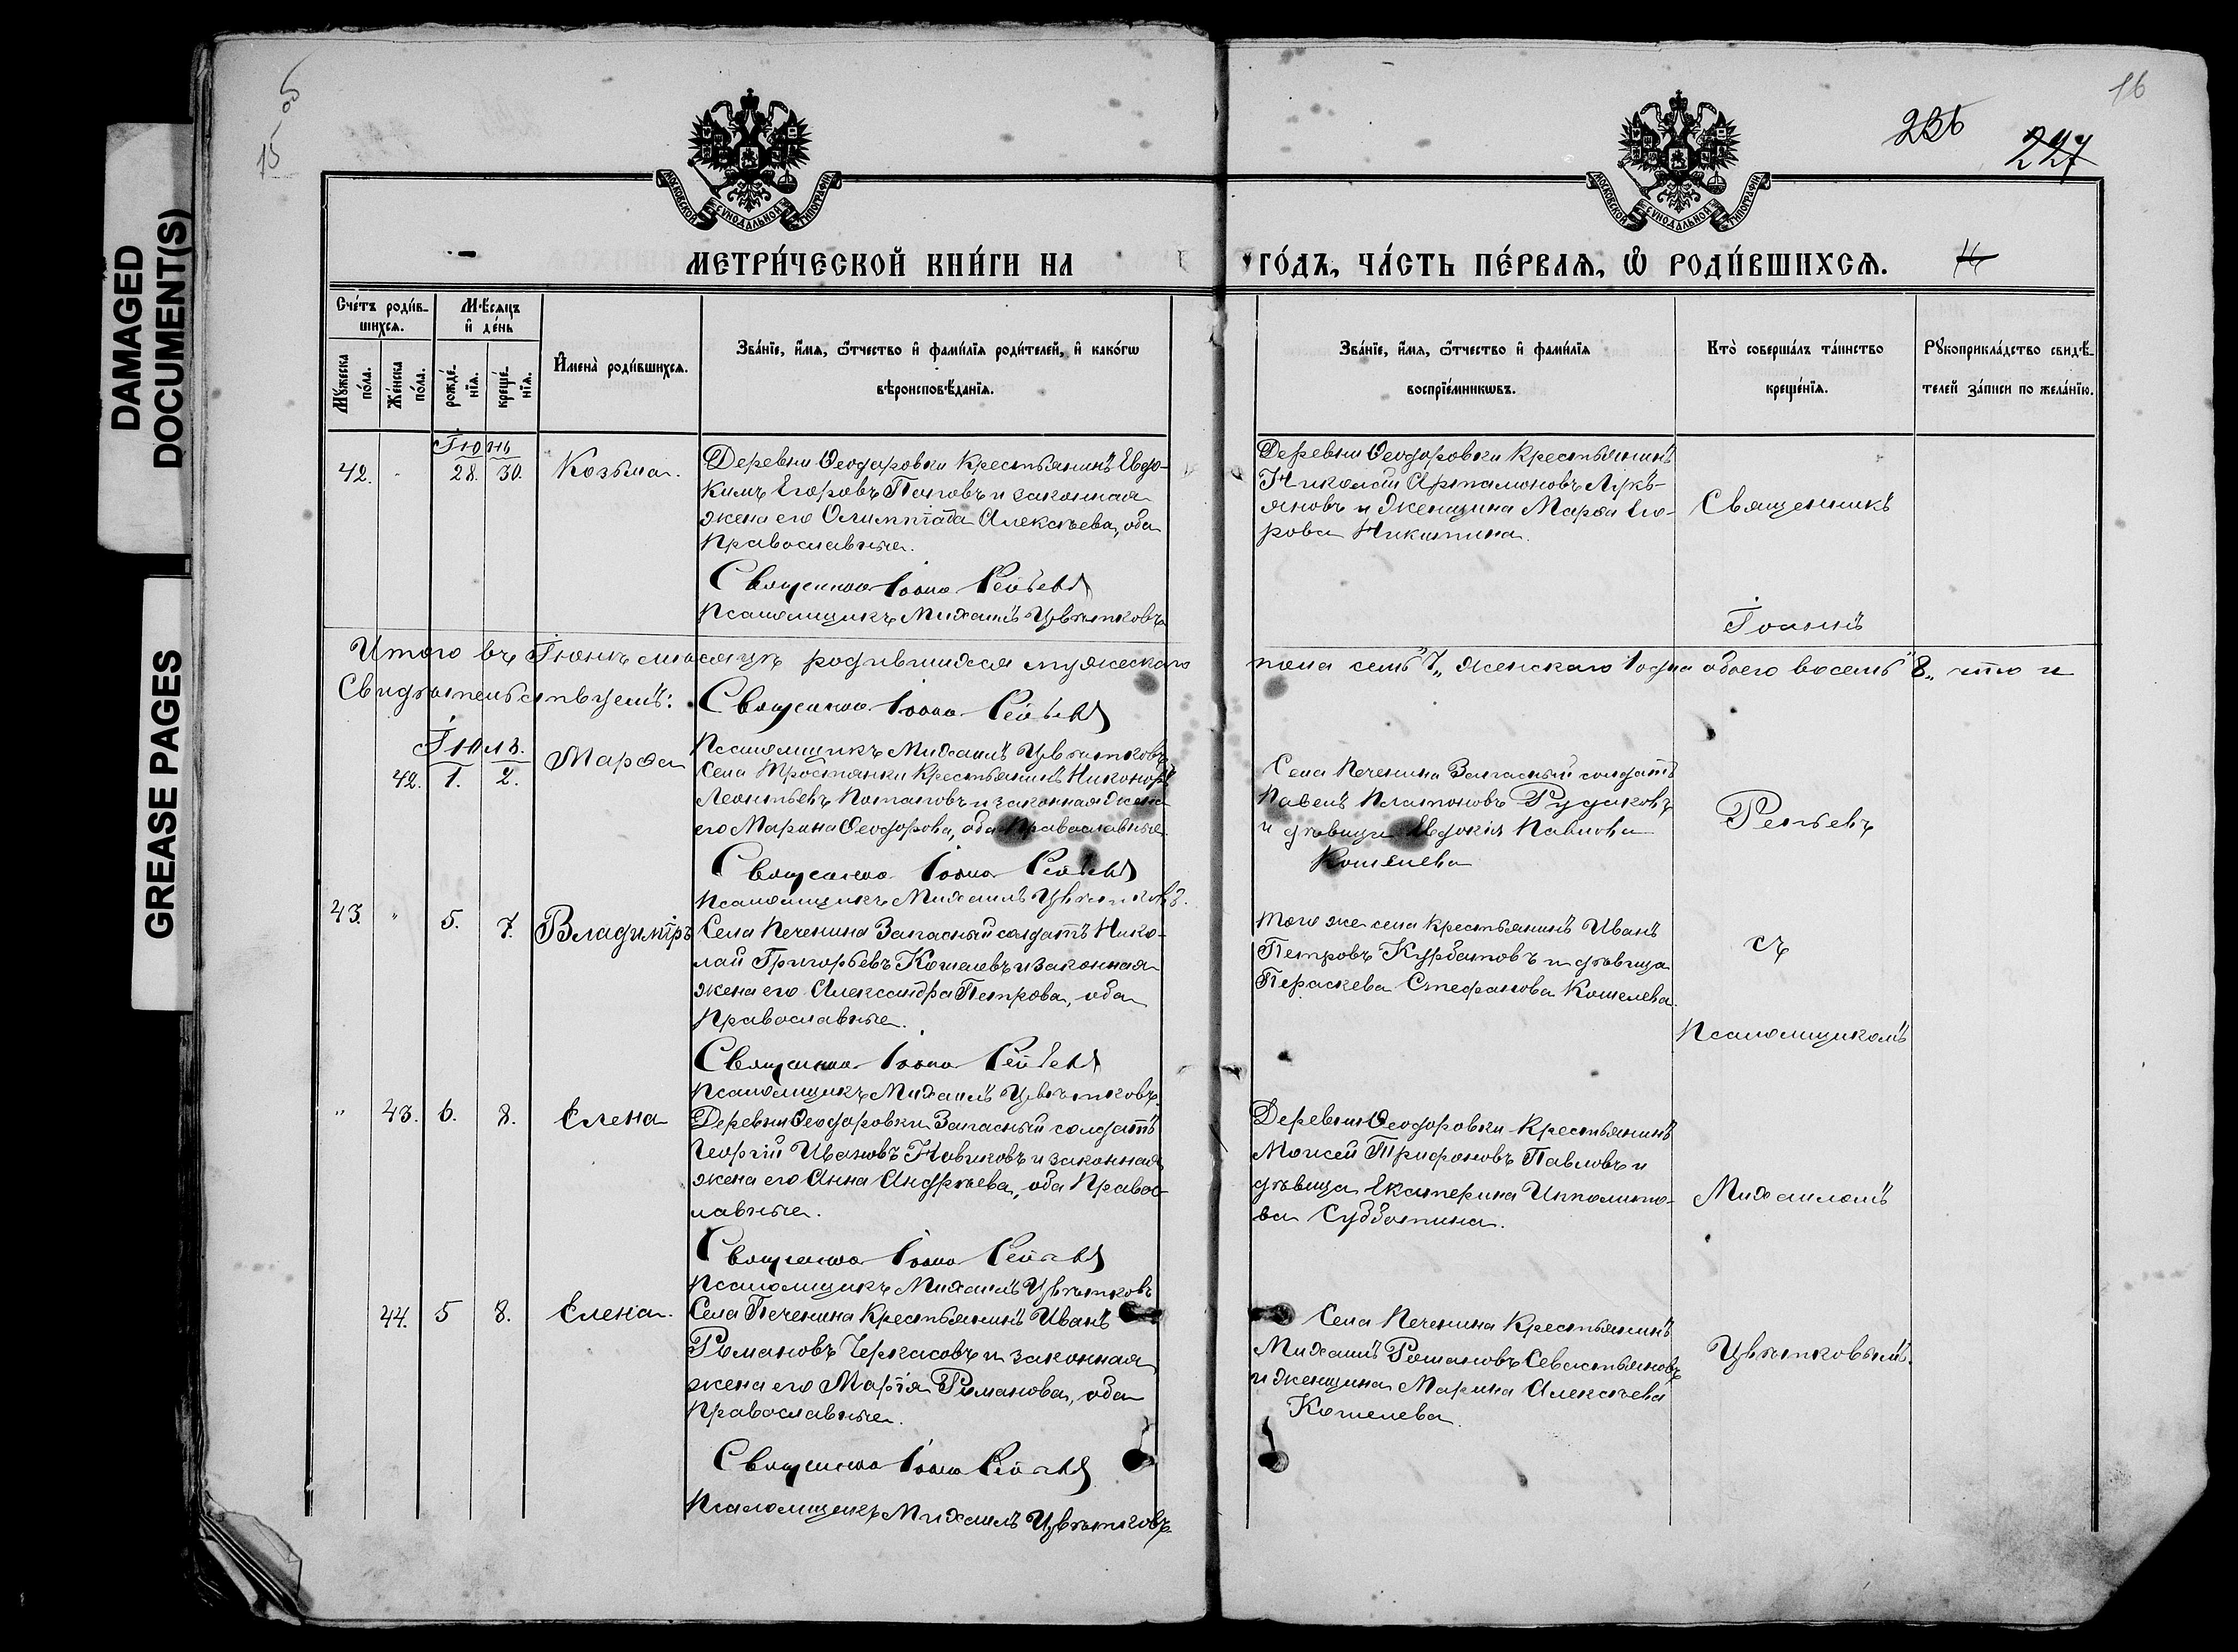 DAMAGED
DOCUMENT(S)
GREASE PAGES
15
16
236
227
МОСКОВСКОЙ СѴНОДАЛЬНОЙ ТИПОГРАФІИ
МОСКОВСКОЙ СѴНОДАЛЬНОЙ ТИПОГРАФІИ
МЕТРИ́ЧЕСКОЙ КНИ́ГИ НА
ГО́ДЪ, ЧА́СТЬ ПЕ́РВАѦ, Ѡ҆ РОДИ́ВШИХСѦ.
Сче́тъ роди́в-
шихсѧ.
Мꙋ́жеска
по́ла.
Же́нска
по́ла.
М́ѣсѧцъ
и҆ де́нь
рожде́-
нїѧ.
креще́-
нїѧ.
И҆мена̀ роди́вшихсѧ.
Зва́нїе, и҆́мѧ, ѻ҆́тчество и҆ фами́лїѧ роди́телей, и҆ како́гѡ
вѣроисповѣ́данїѧ.
Зва́нїе, и҆́мѧ, ѻ҆́тчество и҆ фами́лїѧ
воспрїе́мникѡвъ.
Кто̀ соверша́лъ та́инство
креще́нїѧ.
Рꙋкоприкла́дство свидѣ́-
телей за́писи по жела́нїю.
Іюнь
42. - 28. 30. Козьма.
Деревни Ѳеодоровки крестьянинъ Евдо-
кимъ Егоровъ Поповъ и законная
жена его Олимпіада Алексѣева, оба
православные.
Священникъ Іоаннъ
Псаломщикъ Михаилъ Цвѣтковъ
Деревни Ѳеодоровки крестьянинъ
Николай Артамоновъ Лукь-
яновъ и женщина Марѳа Его-
рова Никитина.
Священникъ
Іоаннъ
Итого въ Іюнѣ мѣсяцѣ родившихся мужескаго пола семь „7„ женскаго 1 одна обоего восемь „8„ что и
Свидѣтельствуемъ: Священникъ Іоаннъ
Псаломщикъ Михаилъ Цвѣтковъ
Іюль.
42. 1. 2. Марѳа
Села Тростянки крестьянинъ Никоноръ
Леонтьевъ Потаповъ и законная жена
его Марина Ѳеодорова, оба православные.
Священникъ Іоаннъ
Псаломщикъ Михаилъ Цвѣтковъ.
Села Печенина Запасный солдатъ
Павелъ Платоновъ Рудаковъ
и дѣвица Евдокія Павлова
Кошелева
43. " 5. 7. Владиміръ
Села Печенина Запасный солдатъ Нико-
лай Григорьевъ Кошелевъ и законная
жена его Александра Петрова, оба
православные.
Священникъ Іоаннъ
Псаломщикъ Михаилъ Цвѣтковъ.
Того же села крестьянинъ Иванъ
Петровъ Курбатовъ и дѣвица
Пераскева Стефанова Кошелева.
съ
Псаломщикомъ
" 43. 6. 8. Елена
Деревни Ѳеодоровки Запасный солдатъ
Георгій Ивановъ Новиковъ и законная
жена его Анна Андрѣева, оба Правос-
лавные.
Священникъ Іоаннъ
Псаломщикъ Михаилъ Цвѣтковъ
Деревни Ѳеодоровки крестьянинъ
Моисей Трифоновъ Павловъ и
дѣвица Екатерина Ипполито-
ва Субботина.
Михаиломъ
44. 5 8. Елена.
Села Печенина крестьянинъ Иванъ
Романовъ Черкасовъ и законная
жена его Марія Романова, оба
православные.
Священникъ Іоаннъ
Псаломщикъ Михаилъ Цвѣтковъ
Села Печенина крестьянинъ
Михаилъ Романовъ Севастьяновъ
и женщина Марина Алексѣева
Кошелева.
Цвѣтковымъ.